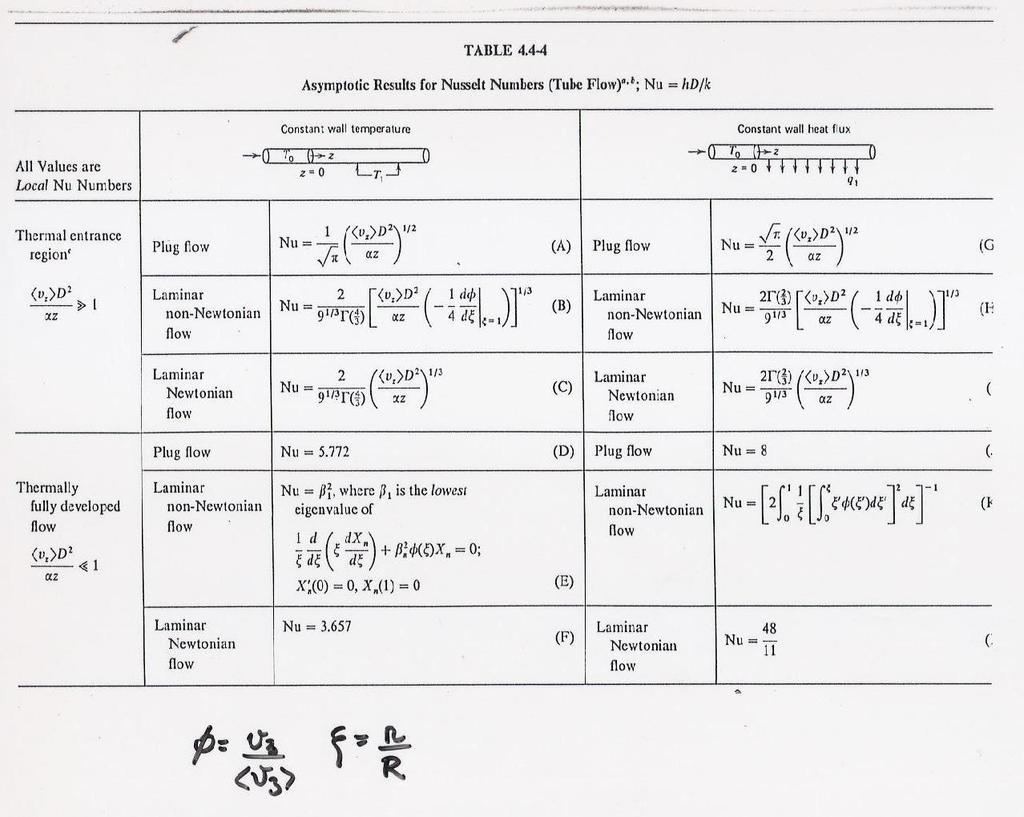 TABLE 4.4-4
Asymptotic Results for Nusselt Numbers (Tube Flow)ᵃ·ᵇ; Nu = hD/k
All Values are
Local Nu Numbers
Constant wall temperature
T₀ z
z = 0 T₁
Constant wall heat flux
T₀ z
z = 0
q₁
Thermal entrance
regionᶜ
⟨v_z⟩D²/αz ≫ 1
Plug flow
Nu = 1/√π (⟨v_z⟩D²/αz)^1/2 (A)
Plug flow
Nu = √π/2 (⟨v_z⟩D²/αz)^1/2 (G
Laminar
non-Newtonian
flow
Nu = 2/(9^1/3 Γ(4/3)) [⟨v_z⟩D²/αz (−1/4 dϕ/dξ|ξ=1)]^1/3 (B)
Laminar
non-Newtonian
flow
Nu = 2Γ(2/3)/9^1/3 [⟨v_z⟩D²/αz (−1/4 dϕ/dξ|ξ=1)]^1/3 (H
Laminar
Newtonian
flow
Nu = 2/(9^1/3 Γ(4/3)) (⟨v_z⟩D²/αz)^1/3 (C)
Laminar
Newtonian
flow
Nu = 2Γ(2/3)/9^1/3 (⟨v_z⟩D²/αz)^1/3 (
Thermally
fully developed
flow
⟨v_z⟩D²/αz ≪ 1
Plug flow
Nu = 5.772 (D)
Plug flow
Nu = 8 (
Laminar
non-Newtonian
flow
Nu = β₁², where β₁ is the lowest
eigenvalue of
1/ξ d/dξ (ξ dXₙ/dξ) + βₙ²ϕ(ξ)Xₙ = 0;
X′ₙ(0) = 0, Xₙ(1) = 0 (E)
Laminar
non-Newtonian
flow
Nu = [2∫₀¹ 1/ξ [∫₀^ξ ξ′ϕ(ξ′)dξ′]² dξ]⁻¹ (K
Laminar
Newtonian
flow
Nu = 3.657 (F)
Laminar
Newtonian
flow
Nu = 48/11 (
ϕ = v₃/⟨v₃⟩ ξ = r/R